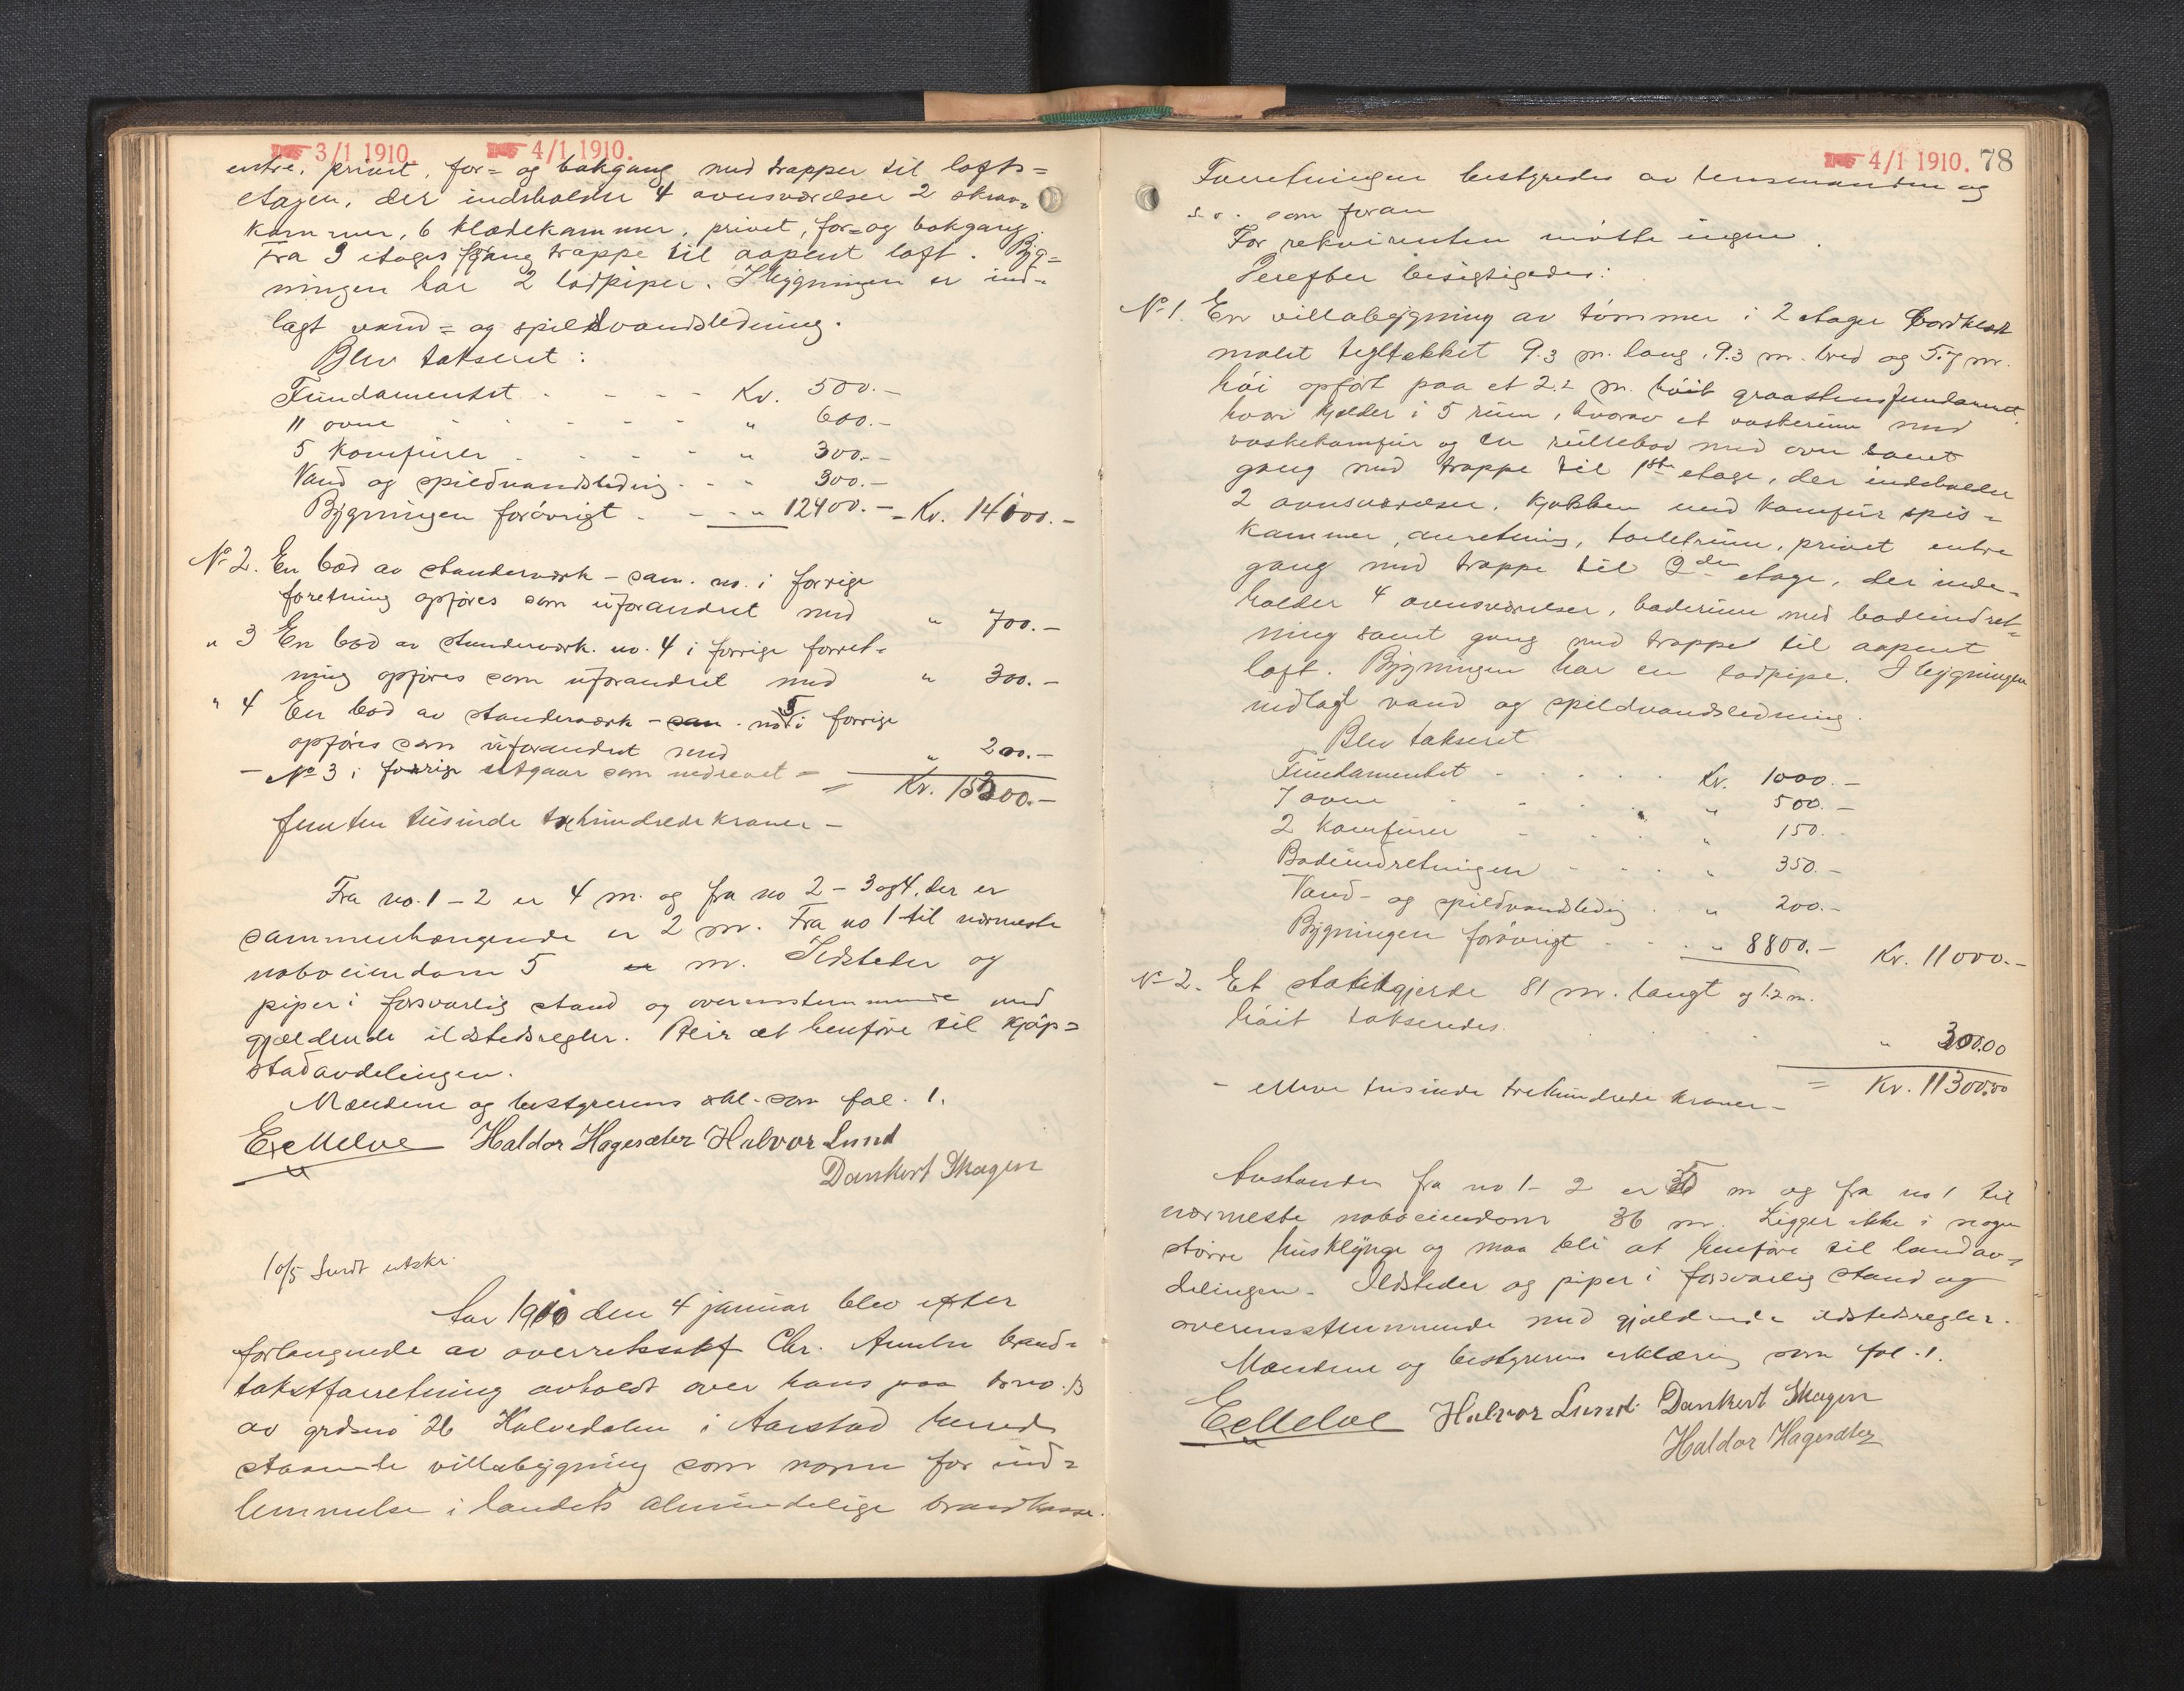 3/1 1910. 4/1 1910.
entre, privet, for= og bakgang med trapper til lofts=
etagen, der indeholder 4 ovnsværelser 2 skraa=
kammer, 6 klædekammer, privet, for= og bakgang.
Fra 3 etages gang trappe til aapent loft. Byg=
ningen har 2 lodpiper. I bygningen er ind=
lagt vand= og spildvandsledning.
Blev takseret:
Fundamentet . - - - Kr. 500.-
11 ovne . . . . - - " 600.-
5 Komfurer . . . . - " 300.-
Vand og spildvandsledning - - " 300.-
Bygningen forøvrigt . - - " 12400.- = Kr. 14100.-
No 2. En bod av stenderverk - sam. no. i forrige
foretning opføres som uforandret med " 700.-
" 3 En bod av stenderverk. no. 4 i forrige forret=
ning opføres som uforandret med " 300.-
" 4 En bod av stenderverk - sam. no 5 i forrige
opføres som uforandret med " 200.-
- No 3 i forrige utgaar som nedrevet = = Kr. 15300.-
femten tusinde trehundrede kroner -
Fra no. 1 - 2 er 4 m. og fra no 2 - 3 og 4, der er
sammenhængende er 2 m. Fra no 1 til nærmeste
naboeiendom 5 er m. Ildsteder og
piper i forsvarlig stand og overensstemmende med
gjældende ildstedsregler. Blir at henføre til kjøp=
stadavdelingen.
Mændene og bestyrerens erkl. som fol. 1.
E. Melve Haldor Hagesæter Halvor Lund
Dankert Skagen
10/5 Sendt utskr.
Aar 1910 den 4 januar blev efter
forlangende av overretssakf Chr. brand=
takstforretning avholdt over hans paa brno. 13
av grdsno 26 Kalvedalen i Aarstad herred
staaende villabygning som norm for ind=
lemmelse i landets almindelige brandkasse.
4/1 1910. 78
Forretningen bestyredes av lensmanden og
s. v. som foran
For rekvirenten møtte ingen.
Derefter besigtigedes:
No 1. En villabygning av tømmer i 2 etager bordklædt
malet tegltækket 9.3 m. lang, 9.3 m. bred og 5.7 m.
høi opført paa et 2.2 m. høit graastensfundament
hvori kjelder i 5 rum, hvorav et vaskerum med
vaskekomfur og en rullebod med ovn samt
gang med trappe til 1ste etage, der indeholder
2 ovnsværelser, kjøkken med komfur spis=
kammer, anretning, toiletrum, privet entre
gang med trappe til 2den etage, der inde=
holder 4 ovnsværelser, baderum med badeindret=
ning samt gang med trappe til aapent
loft. Bygningen har en lodpipe. I bygningen
indlagt vand og spildvandsledning.
Blev takseret
Fundamentet . . . . Kr. 1000.-
7 ovne . . . . " 500.-
2 Komfurer . . . " 150.-
Badeindretningen - - - " 350.-
Vand- og spildvandsledng . " 200.-
Bygningen forøvrigt - - . " 8800.- Kr. 11000.-
No 2. Et stakitgjerde 81 m. langt og 1.2 m.
høit takseredes . . . . " 300.00
- elleve tusinde trehundrede kroner - = Kr. 11300.00
Avstanden fra no 1 - 2 er m og fra no 1 til
nærmeste naboeiendom 36 m. Ligger ikke i nogen
større husklynge og maa bli at henføre til landav=
delingen. Ildsteder og piper i forsvarlig stand og
overensstemmende med gjældende ildstedsregler.
Mændene og bestyrerens erklæring som fol. 1.
E. Melve Halvor Lund. Dankert Skagen
Haldor Hagesæter